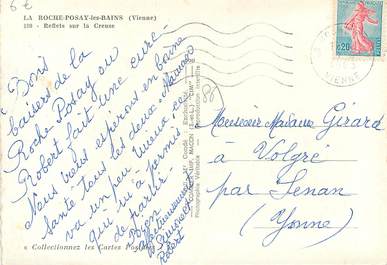 6 €
LA ROCHE-POSAY-les-BAINS (Vienne)
159 - Reflets sur la Creuse
" Bons
baisers de la
Roche Posay ou
Robert fait une cure
Nous vous espérons en bonne
santé tous les deux. Maurice
va un peu mieux ce
qui m'a permis
de partir
Bien
affectueusement
Robert
Monsieur Madame Girard
à Volgré
par Senan
(Yonne)
0,20
VIENNE
MACON
Reproduction interdite
Photographie Véritable
Collectionnez les Cartes Postales